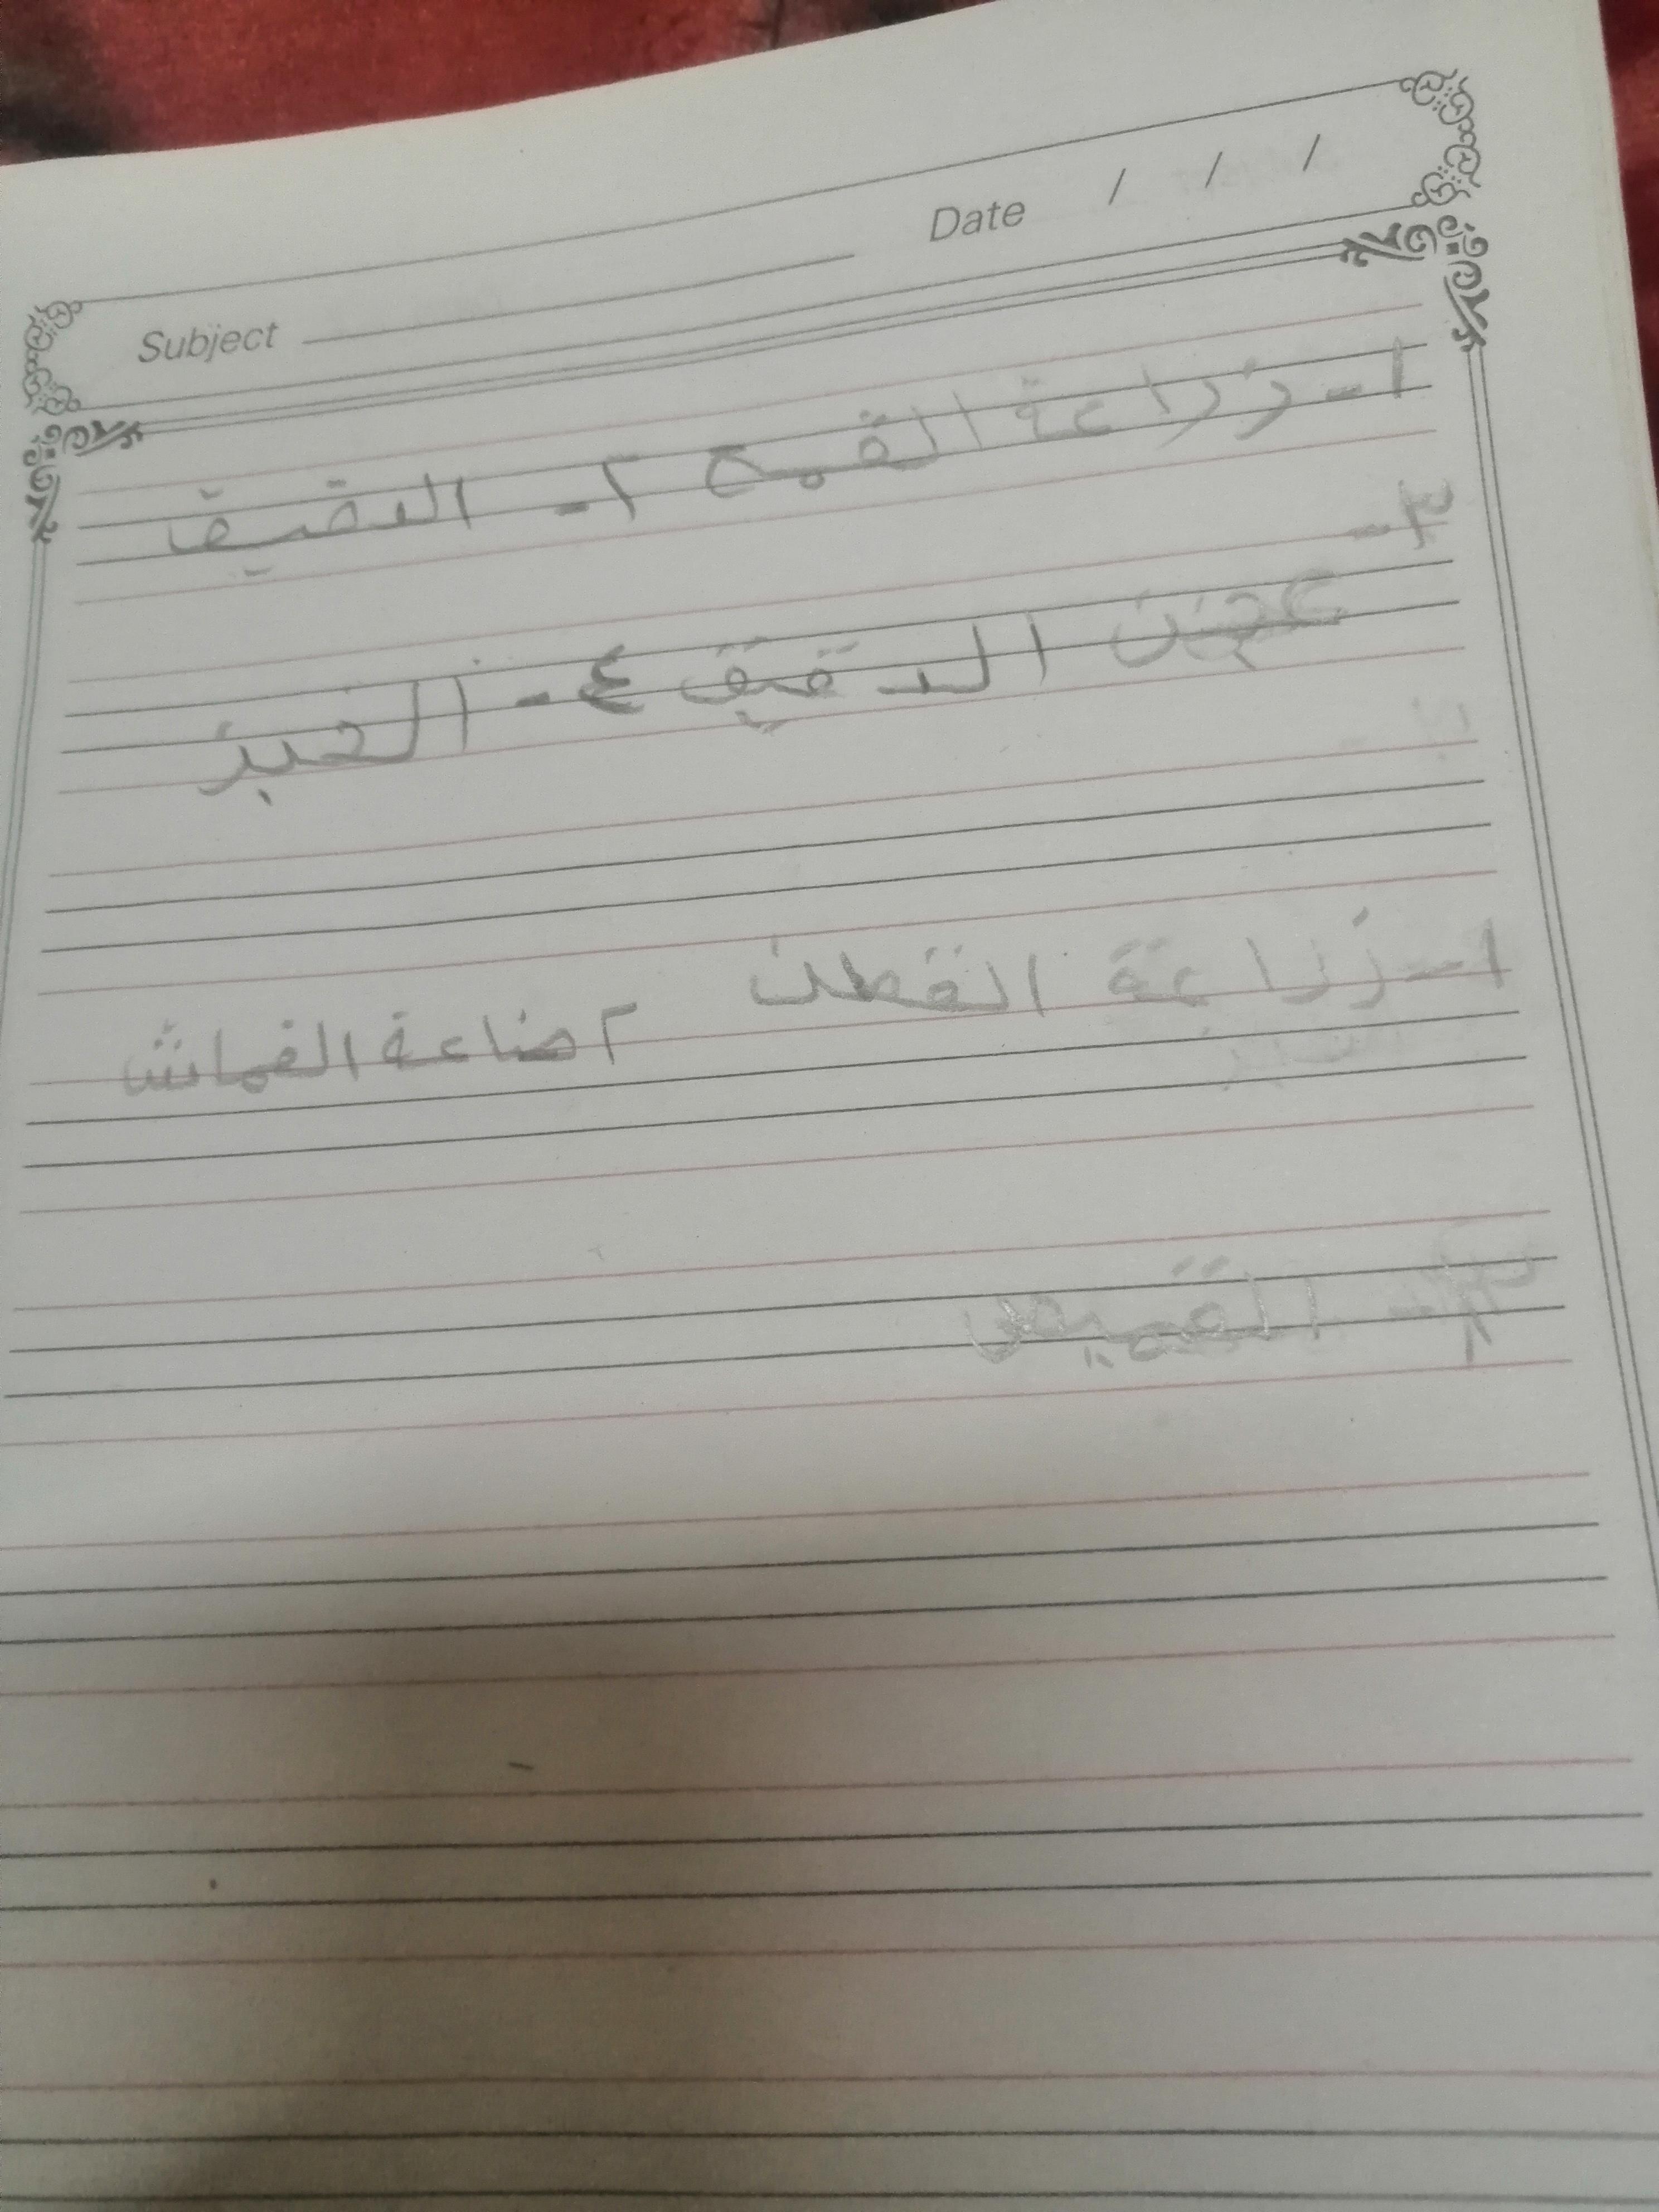 Subject Date / / /
١- زراعة القمح ٢- الدقيق
٣-
عجن الدقيق ٤- الخبز
١- زراعة القطن ٢ صناعة القماش
٣- القميص